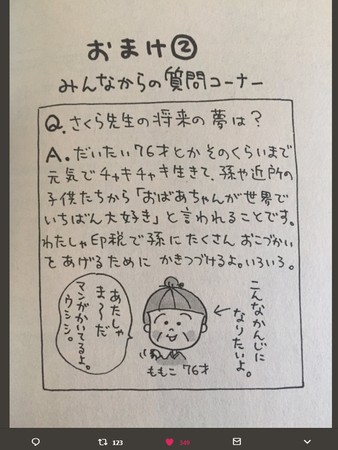 おまけ②
みんなからの質問コーナー
Q.さくら先生の将来の夢は？
A.だいたい76才とかそのくらいまで
元気でチャキチャキ生きて、孫や近所の
子供たちから「おばあちゃんが世界で
いちばん大好き」と言われることです。
わたしゃ印税で孫にたくさんおこづかい
をあげるために かきつづけるよ。いろいろ。
こんなかんじに
なりたいよ。
あたしゃ
ま〜だ
マンガかいてるよ。
ウシシ。
ももこ 76才
123
348